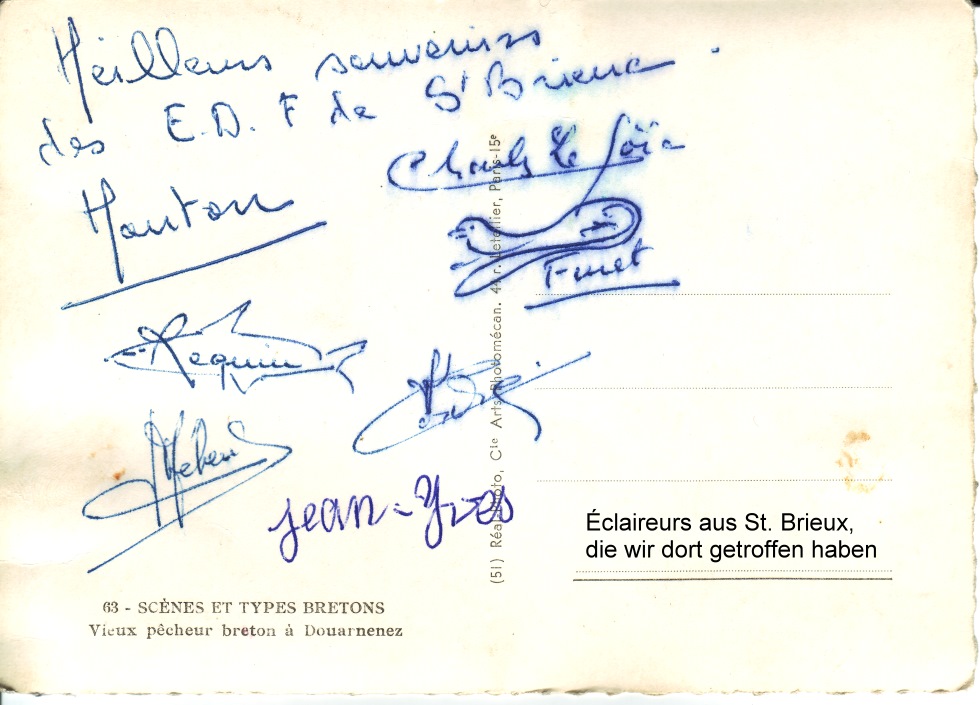 Meilleurs souvenirs
des E.D.F de St Brieuc
Charles Le Goïc
Mouton
Furet
Requin
jean-Yves
Éclaireurs aus St. Brieux,
die wir dort getroffen haben
63 - SCÈNES ET TYPES BRETONS
Vieux pêcheur breton à Douarnenez
(51) Réal-Photo, Cie Arts Photomécan. 44 r. Letellier, Paris-15e